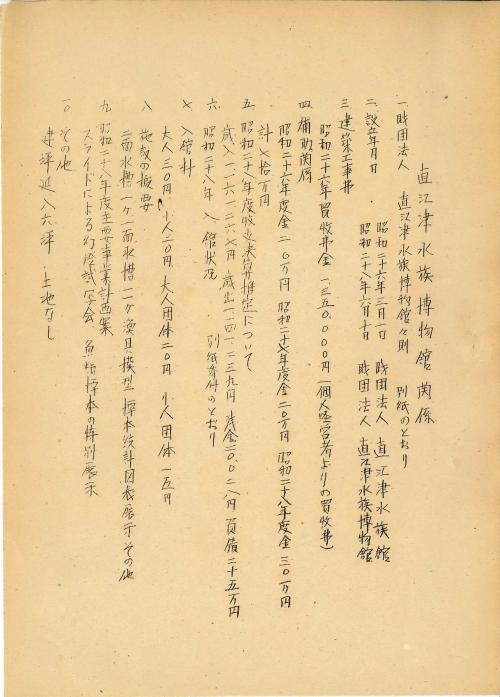 直江津水族博物館関係
一、財団法人 直江津水族博物館々則 別紙のとおり
二、設立年月日 昭和二十六年三月一日 財団法人 直江津水族館
昭和二十八年六月十日 財団法人 直江津水族博物館
三、建築工事費
昭和二十六年買收費金 一三五〇.〇〇〇円(個人経営者よりの買收費)
四、補助関係
昭和二十六年度金 二〇万円 昭和二十七年度金二〇万円 昭和二十八年度金 三〇万円
計七拾万円
五、昭和二十八年度收支決算推定について
歳入一.一六一.二六七円 歳出一.一四一.二三九円 残金二〇.〇二八円 負債二十五万円
六、昭和二十八年 入館状況 別紙添付のとおり
七、入館料
大人三〇円 小人二〇円 大人団体二〇円 小人団体 一五円
八、施設の概要
二面水槽一ケ 一面水槽 一一ケ 漁具模型 標本統計図表展示その他
九、昭和二十八年度主要事業計画案
スライドによる幻燈映写会 魚類標本の特別展示
一〇、その他
建坪延八六坪 土地なし